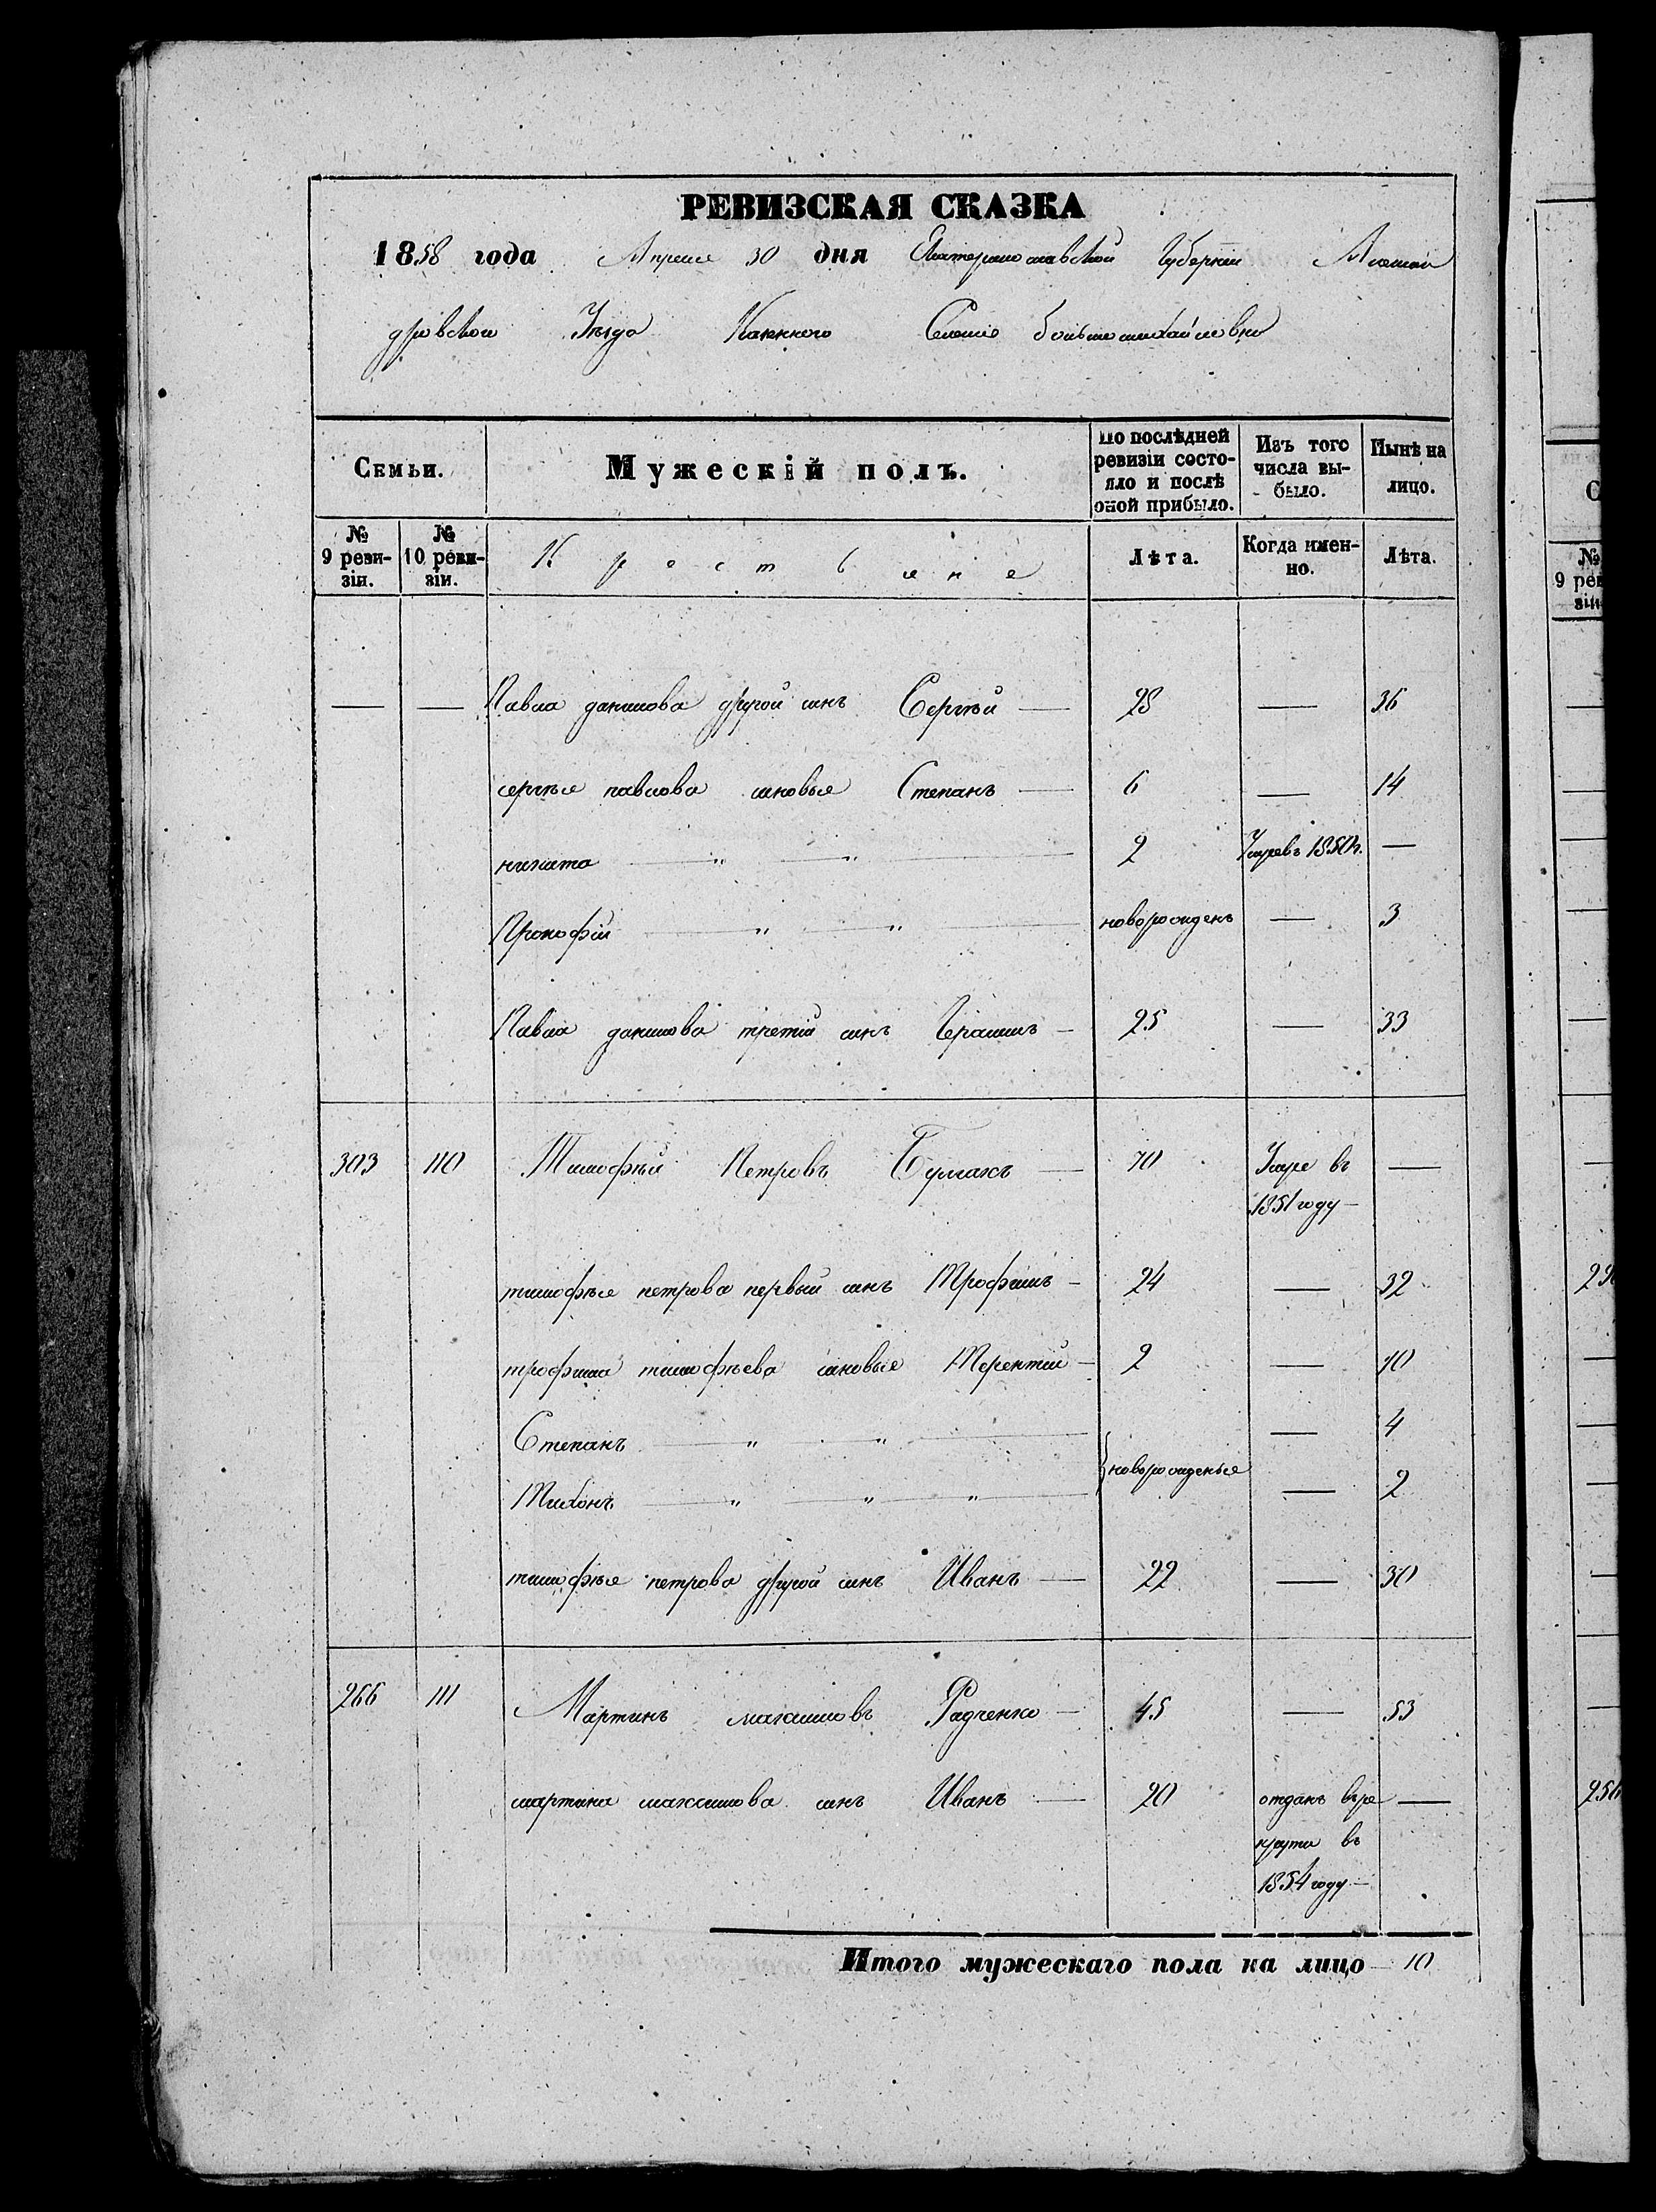 РЕВИЗСКАЯ СКАЗКА
1858 года Апреля 30 дня Екатеринославской Губернии Алексан
дровского Уѣзда Казенного Селения большемихайловки
Семьи. Мужескій полъ. По послѣдней ревизіи состо-яло и послѣ оной прибыло. Изъ того числа вы-было. Нынѣ на лицо.
№ 9 реви-зіи. № 10 реви-зіи. Крестьяне Лѣта. Когда имен-но. Лѣта.
— — Павла данилова другой синъ Сергѣй — 28 — 36
сергѣя павлова синовья Степанъ — 6 — 14
никита — " — " — 2 Умре въ 1850 г. —
Прокофій — " — " — новорожденъ — 3
Павла данилова третій синъ Герасимъ — 25 — 33
303 110 Тимофѣй Петровъ Бумакъ — 70 Умре въ —
1851 году —
тимофѣя петрова первый синъ Трофимъ — 24 — 32
трофима тимофѣева синовья Терентій — 2 — 10
Степанъ — " — " — — 4
новорожденые
Тихонъ — " — " — " — — 2
тимофѣя петрова другой синъ Иванъ — 22 — 30
266 111 Мартинъ максимовъ Радченко — 45 — 53
мартина максимова синъ Иванъ — 20 отданъ въ ре —
круты въ
1854 году —
Итого мужескаго пола на лицо — 10
№
9 рев
зіи
256